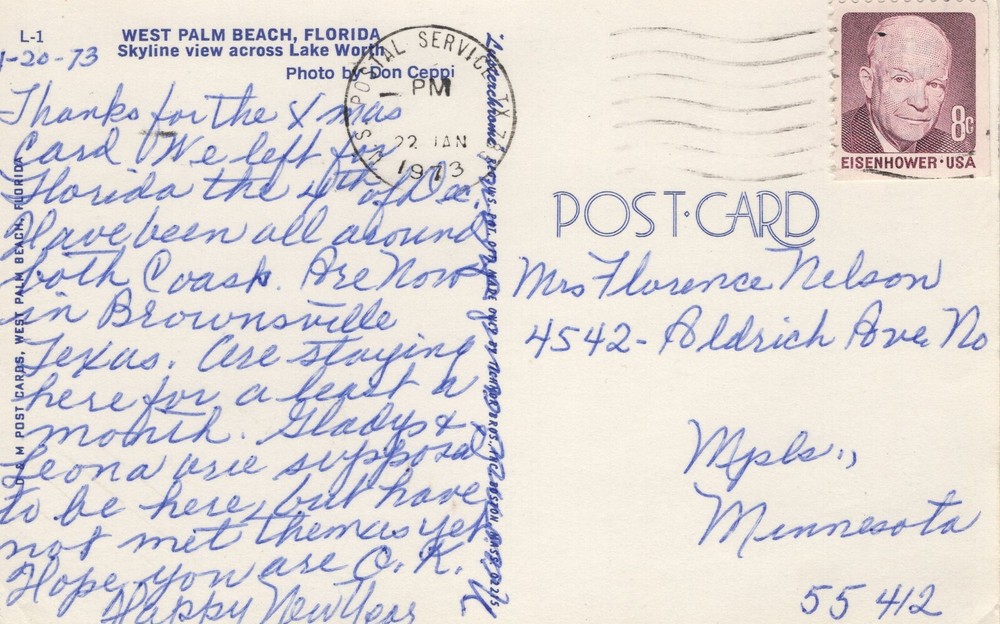 L-1
WEST PALM BEACH, FLORIDA
Skyline view across Lake Worth
Photo by Don Ceppi
1-20-73
Thanks for the Xmas
Card. We left for
Florida the 4th of Dec.
Have been all around
both Coast. Are Now
in Brownsville
Texas. are staying
here for a least a
month. Gladys &
Leona are supposed
to be here, but have
not met them as yet
Hope you are O.K.
Happy New Year
D & M POST CARDS, WEST PALM BEACH, FLORIDA
U.S. POSTAL SERVICE TX
PM
22 JAN
1973
EISENHOWER·USA
8c
POST·CARD
Mrs Florence Nelson
4542- Aldrich Ave. No
Mpls.,
Minnesota
55412